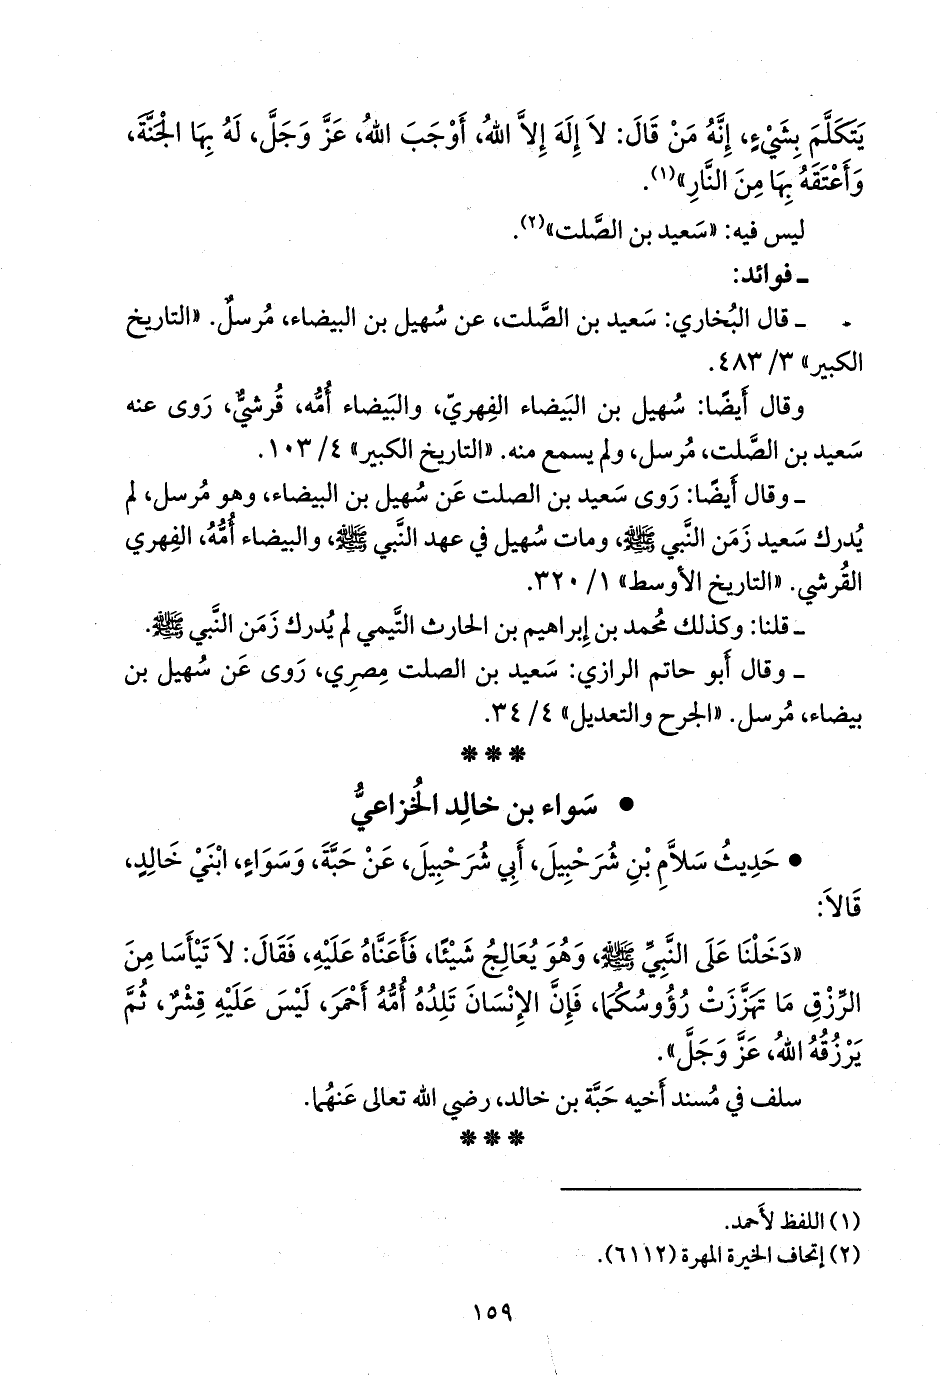 يَتَكَلَّمَ بِشَيْءٍ، إِنَّهُ مَنْ قَالَ: لاَ إِلَهَ إِلاَّ اللهُ، أَوْجَبَ اللهُ، عَزَّ وَجَلَّ، لَهُ بِهَا الْجَنَّةَ،
وَأَعْتَقَهُ بِهَا مِنَ النَّارِ»(١).
ليس فيه: «سَعيد بن الصَّلت»(٢).
ـ فوائد:
ـ قال البُخاري: سَعيد بن الصَّلت، عن سُهيل بن البيضاء، مُرسلٌ. «التاريخ
الكبير» ٣/ ٤٨٣.
وقال أَيضًا: سُهيل بن البَيضاء الفِهريّ، والبَيضاء أُمُّه، قُرشيٌّ، رَوى عنه
سَعيد بن الصَّلت، مُرسل، ولم يسمع منه. «التاريخ الكبير» ٤/ ١٠٣.
ـ وقال أَيضًا: رَوى سَعيد بن الصلت عَن سُهيل بن البيضاء، وهو مُرسل، لم
يُدرك سَعيد زَمَن النَّبي ﷺ، ومات سُهيل في عهد النَّبي ﷺ، والبيضاء أُمُّهُ، الفِهري
القُرشي. «التاريخ الأوسط» ١/ ٣٢٠.
ـ قلنا: وكذلك مُحمد بن إِبراهيم بن الحارث التَّيمي لم يُدرك زَمَن النَّبي ﷺ.
ـ وقال أَبو حاتم الرازي: سَعيد بن الصلت مِصري، رَوى عَن سُهيل بن
بيضاء، مُرسل. «الجرح والتعديل» ٤/ ٣٤.
***
• سَواء بن خالِد الخُزاعيُّ
• حَدِيثُ سَلاَّمِ بْنِ شُرَحْبِيلَ، أَبِي شُرَحْبِيلَ، عَنْ حَبَّةَ، وَسَوَاءٍ، ابْنَيْ خَالِدٍ،
قَالاَ:
«دَخَلْنَا عَلَى النَّبِيِّ ﷺ، وَهُوَ يُعَالِجُ شَيْئًا، فَأَعَنَّاهُ عَلَيْهِ، فَقَالَ: لاَ تَيْأَسَا مِنَ
الرِّزْقِ مَا تَهَزَّزَتْ رُؤُوسُكُمَا، فَإِنَّ الإِنْسَانَ تَلِدُهُ أُمُّهُ أَحْمَرَ، لَيْسَ عَلَيْهِ قِشْرٌ، ثُمَّ
يَرْزُقُهُ اللهُ، عَزَّ وَجَلَّ».
سلف في مُسند أَخيه حَبَّة بن خالد، رضي الله تعالى عَنهُما.
***
(١) اللفظ لأَحمد.
(٢) إتحاف الخيرة المهرة (٦١١٢).
١٥٩